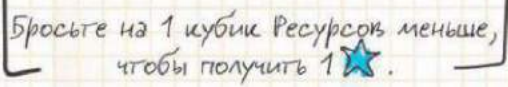 Бросьте на 1 кубик Ресурсов меньше,
чтобы получить 1 .